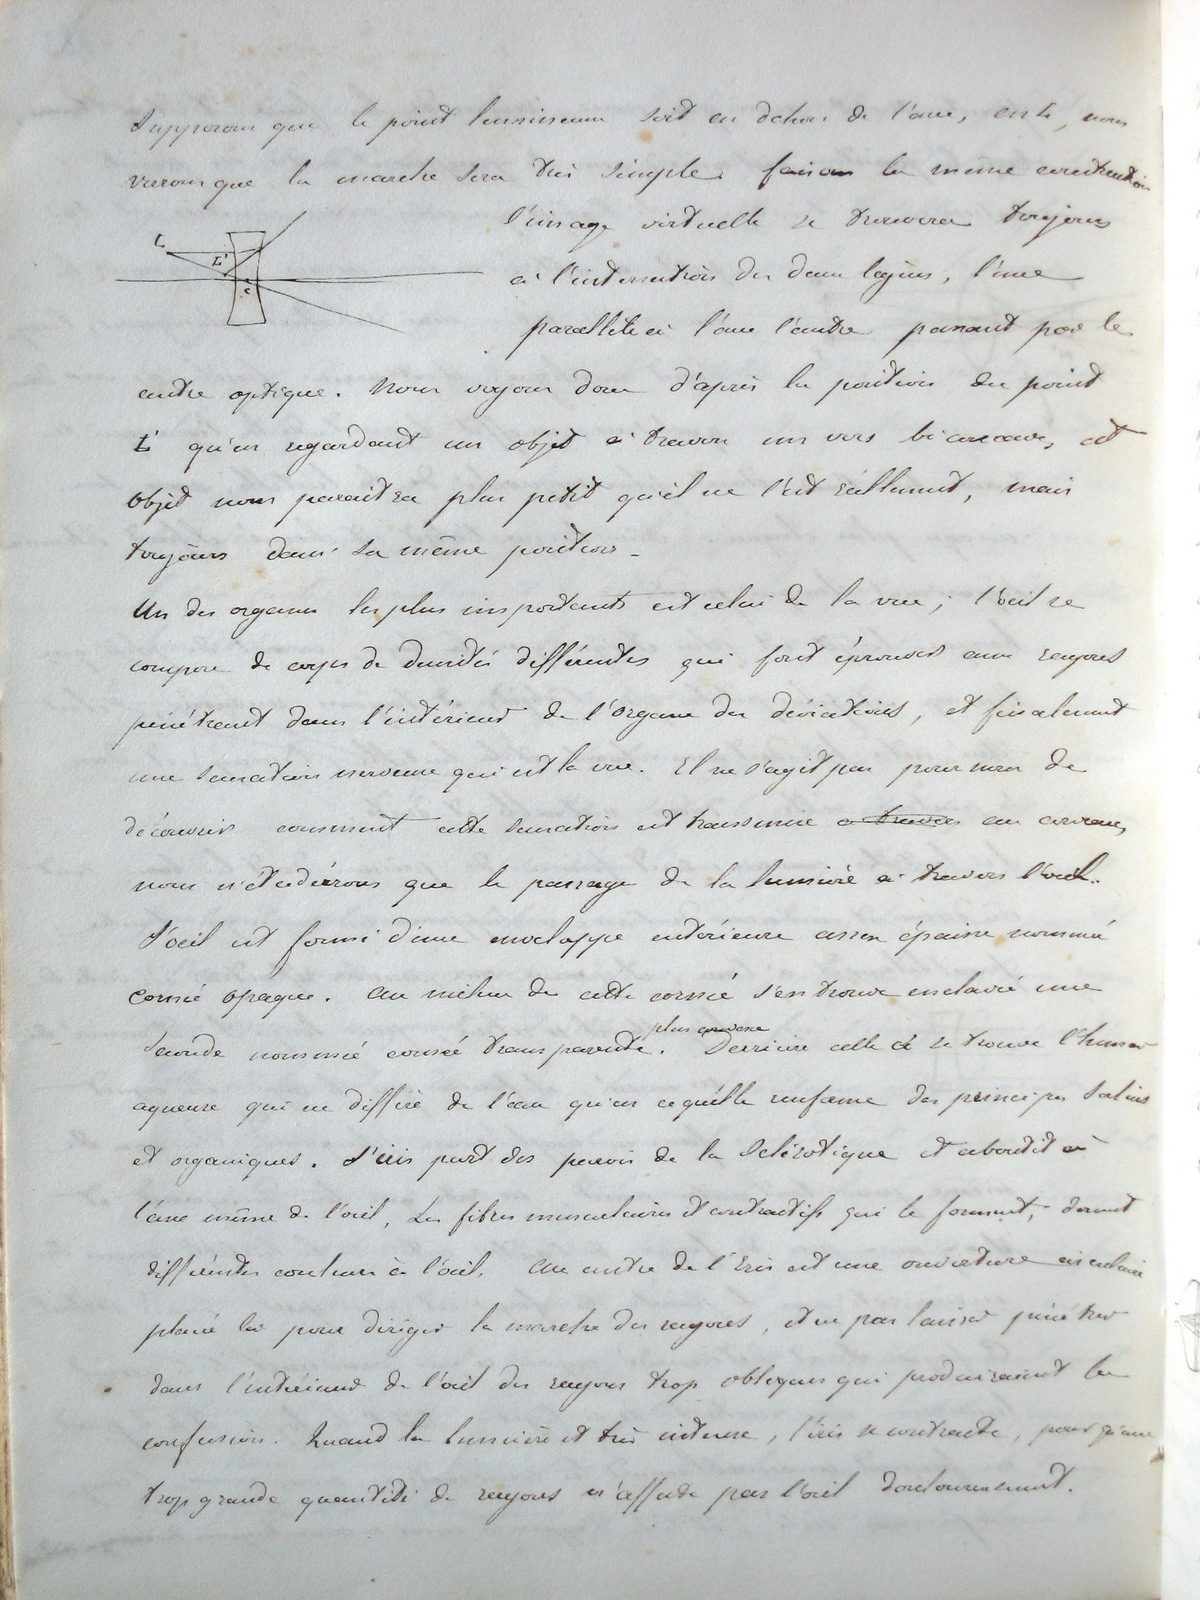 Supposons que le point lumineux soit en dehors de l'axe, en L, nous
verrons que la marche sera très simple. faisons la même construction
l'image virtuelle se trouvera toujours
à l'intersection des deux lignes, l'une
parallèle à l'axe l'autre passant par le
L
L'
c
centre optique. Nous voyons donc d'après la position du point
L' qu'en regardant un objet à travers un vers biconcave, cet
objet nous paraitra plus petit qu'il ne l'est réellement, mais
toujours dans sa même position.
Un des organes les plus importants est celui de la vue; l'œil se
compose de corps de densités différentes qui font éprouver aux rayons
pénétrant dans l'intérieur de l'organe des déviations, et finalement
une sensation nerveuse qui est la vue. Il ne s'agit pas pour nous de
découvrir comment cette sensation est transmise a travers au cerveau,
nous n'étudierons que le passage de la lumière à travers l'œil.
L'œil est formé d'une enveloppe extérieure assez épaisse nommée
cornée opaque. Au milieu de cette cornée s'en trouve enclavée une
plus convexe
seconde nommée cornée transparente. Derrière celle ci se trouve l'humeur
aqueuse qui ne diffère de l'eau qu'en ce qu'elle renferme des principes salins
et organiques. L'iris part des parois de la sclérotique et aboutit à
l'axe même de l'œil, Les fibres musculaires et contractifs qui le forment, donnent
différentes couleurs à l'œil. Au centre de l'Iris est une ouverture circulaire
placée là pour diriger la marche des rayons, et ne pas laisser pénétrer
dans l'intérieur de l'œil des rayons trop obliques qui produiraient la
confusion. Quand la lumière est très intense, l'iris se contracte, pour qu'une
trop grande quantité de rayons n'affecte pas l'œil douloureusement.